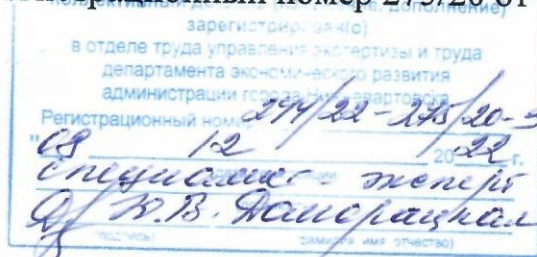 номер 275/20 от
дополнение)
зарегистрирован(о)
в отделе труда управления экспертизы и труда
департамента экономического развития
администрации города Нижневартовска
Регистрационный номер 274/22-275/20-
"08 12 2022 г.
специалист-эксперт
Ю.В.
(подпись) фамилия имя отчество)